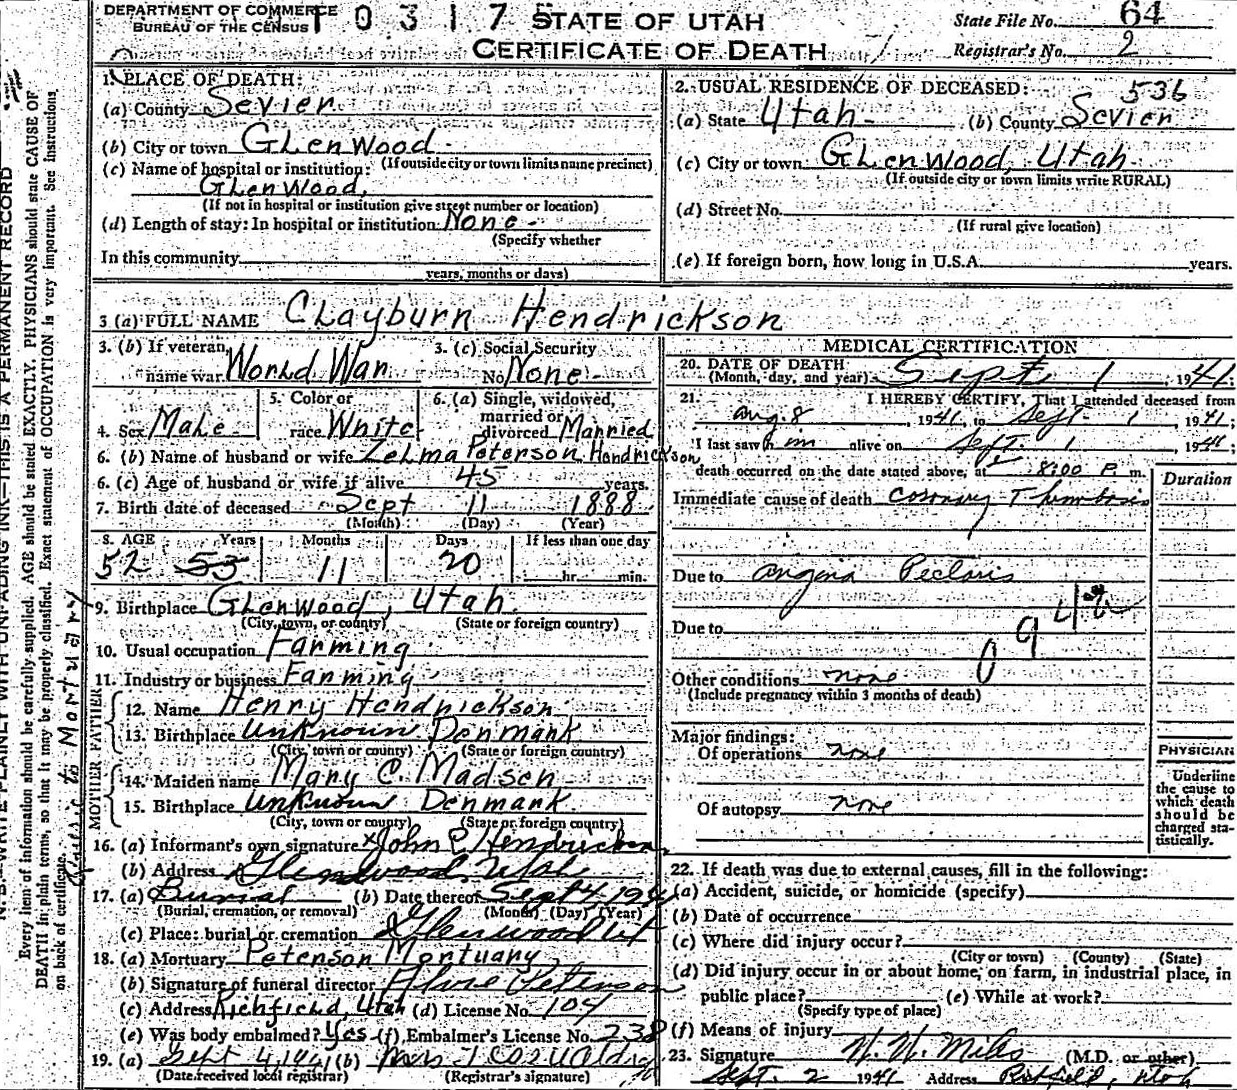 DEPARTMENT OF COMMERCE
BUREAU OF THE CENSUS
T 0 3 1 7 5
STATE OF UTAH
CERTIFICATE OF DEATH
State File No. 64
Registrar's No. 2
N. B.—WRITE PLAINLY WITH UNFADING INK—THIS IS A PERMANENT RECORD
Every item of information should be carefully supplied. AGE should be stated EXACTLY. PHYSICIANS should state CAUSE OF
DEATH in plain terms, so that it may be properly classified. Exact statement of OCCUPATION is very important. See instructions
on back of certificate.
1. PLACE OF DEATH:
(a) County Sevier
(b) City or town Glenwood
(If outside city or town limits name precinct)
(c) Name of hospital or institution:
Glenwood,
(If not in hospital or institution give street number or location)
(d) Length of stay: In hospital or institution None
(Specify whether
In this community
years, months or days)
2. USUAL RESIDENCE OF DECEASED: 536
(a) State Utah (b) County Sevier
(c) City or town Glenwood, Utah
(If outside city or town limits write RURAL)
(d) Street No.
(If rural give location)
(e) If foreign born, how long in U.S.A. years.
3 (a) FULL NAME Clayburn Hendrickson
3. (b) If veteran, name war World War 3. (c) Social Security No. None
4. Sex Male 5. Color or race White 6. (a) Single, widowed, married or divorced Married
6. (b) Name of husband or wife Zelma Peterson Hendrickson
6. (c) Age of husband or wife if alive 45 years.
7. Birth date of deceased Sept 11 1888
(Month) (Day) (Year)
8. AGE Years Months Days If less than one day
52 53 11 20 hr. min.
9. Birthplace Glenwood, Utah.
(City, town, or county) (State or foreign country)
10. Usual occupation Farming
11. Industry or business Farming
FATHER
12. Name Henry Hendrickson
13. Birthplace Unknown Denmark
(City, town or county) (State or foreign country)
MOTHER
14. Maiden name Mary C. Madsen
15. Birthplace Unknown Denmark
(City, town or county) (State or foreign country)
16. (a) Informant's own signature x John P. Hendrickson
(b) Address Glenwood, Utah
17. (a) Burial (b) Date thereof Sept 4, 1941
(Burial, cremation, or removal) (Month) (Day) (Year)
(c) Place: burial or cremation Glenwood Ut
18. (a) Mortuary Peterson Mortuary
(b) Signature of funeral director Peterson
(c) Address Richfield, Utah (d) License No. 104
(e) Was body embalmed? Yes (f) Embalmer's License No. 238
19. (a) Sept 4, 1941 (b) Mrs
(Date received local registrar) (Registrar's signature)
MEDICAL CERTIFICATION
20. DATE OF DEATH
(Month, day, and year) Sept 1, 1941;
21. I HEREBY CERTIFY, That I attended deceased from
Aug. 8, 1941, to Sept. 1, 1941;
I last saw him alive on Sept. 1, 1941;
death occurred on the date stated above, at 8:00 P. m.
Duration
Immediate cause of death Coronary Thrombosis
Due to Angina Pectoris
Due to
Other conditions none
(Include pregnancy within 3 months of death)
Major findings:
Of operations none
Of autopsy none
PHYSICIAN
Underline
the cause to
which death
should be
charged sta-
tistically.
22. If death was due to external causes, fill in the following:
(a) Accident, suicide, or homicide (specify)
(b) Date of occurrence
(c) Where did injury occur?
(City or town) (County) (State)
(d) Did injury occur in or about home, on farm, in industrial place, in
public place? (e) While at work?
(Specify type of place)
(f) Means of injury
23. Signature (M.D. or other)
Sept. 2 1941 Address Richfield, Utah